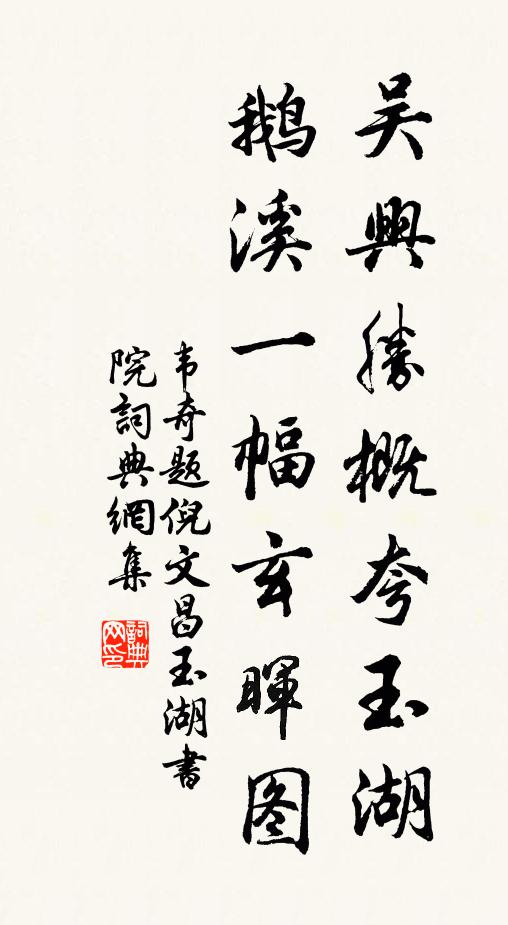 吴興勝概夸玉湖
鹅溪一幅玄暉图
韦奇题倪文昌玉湖書
院詞典網集
詞典
网印